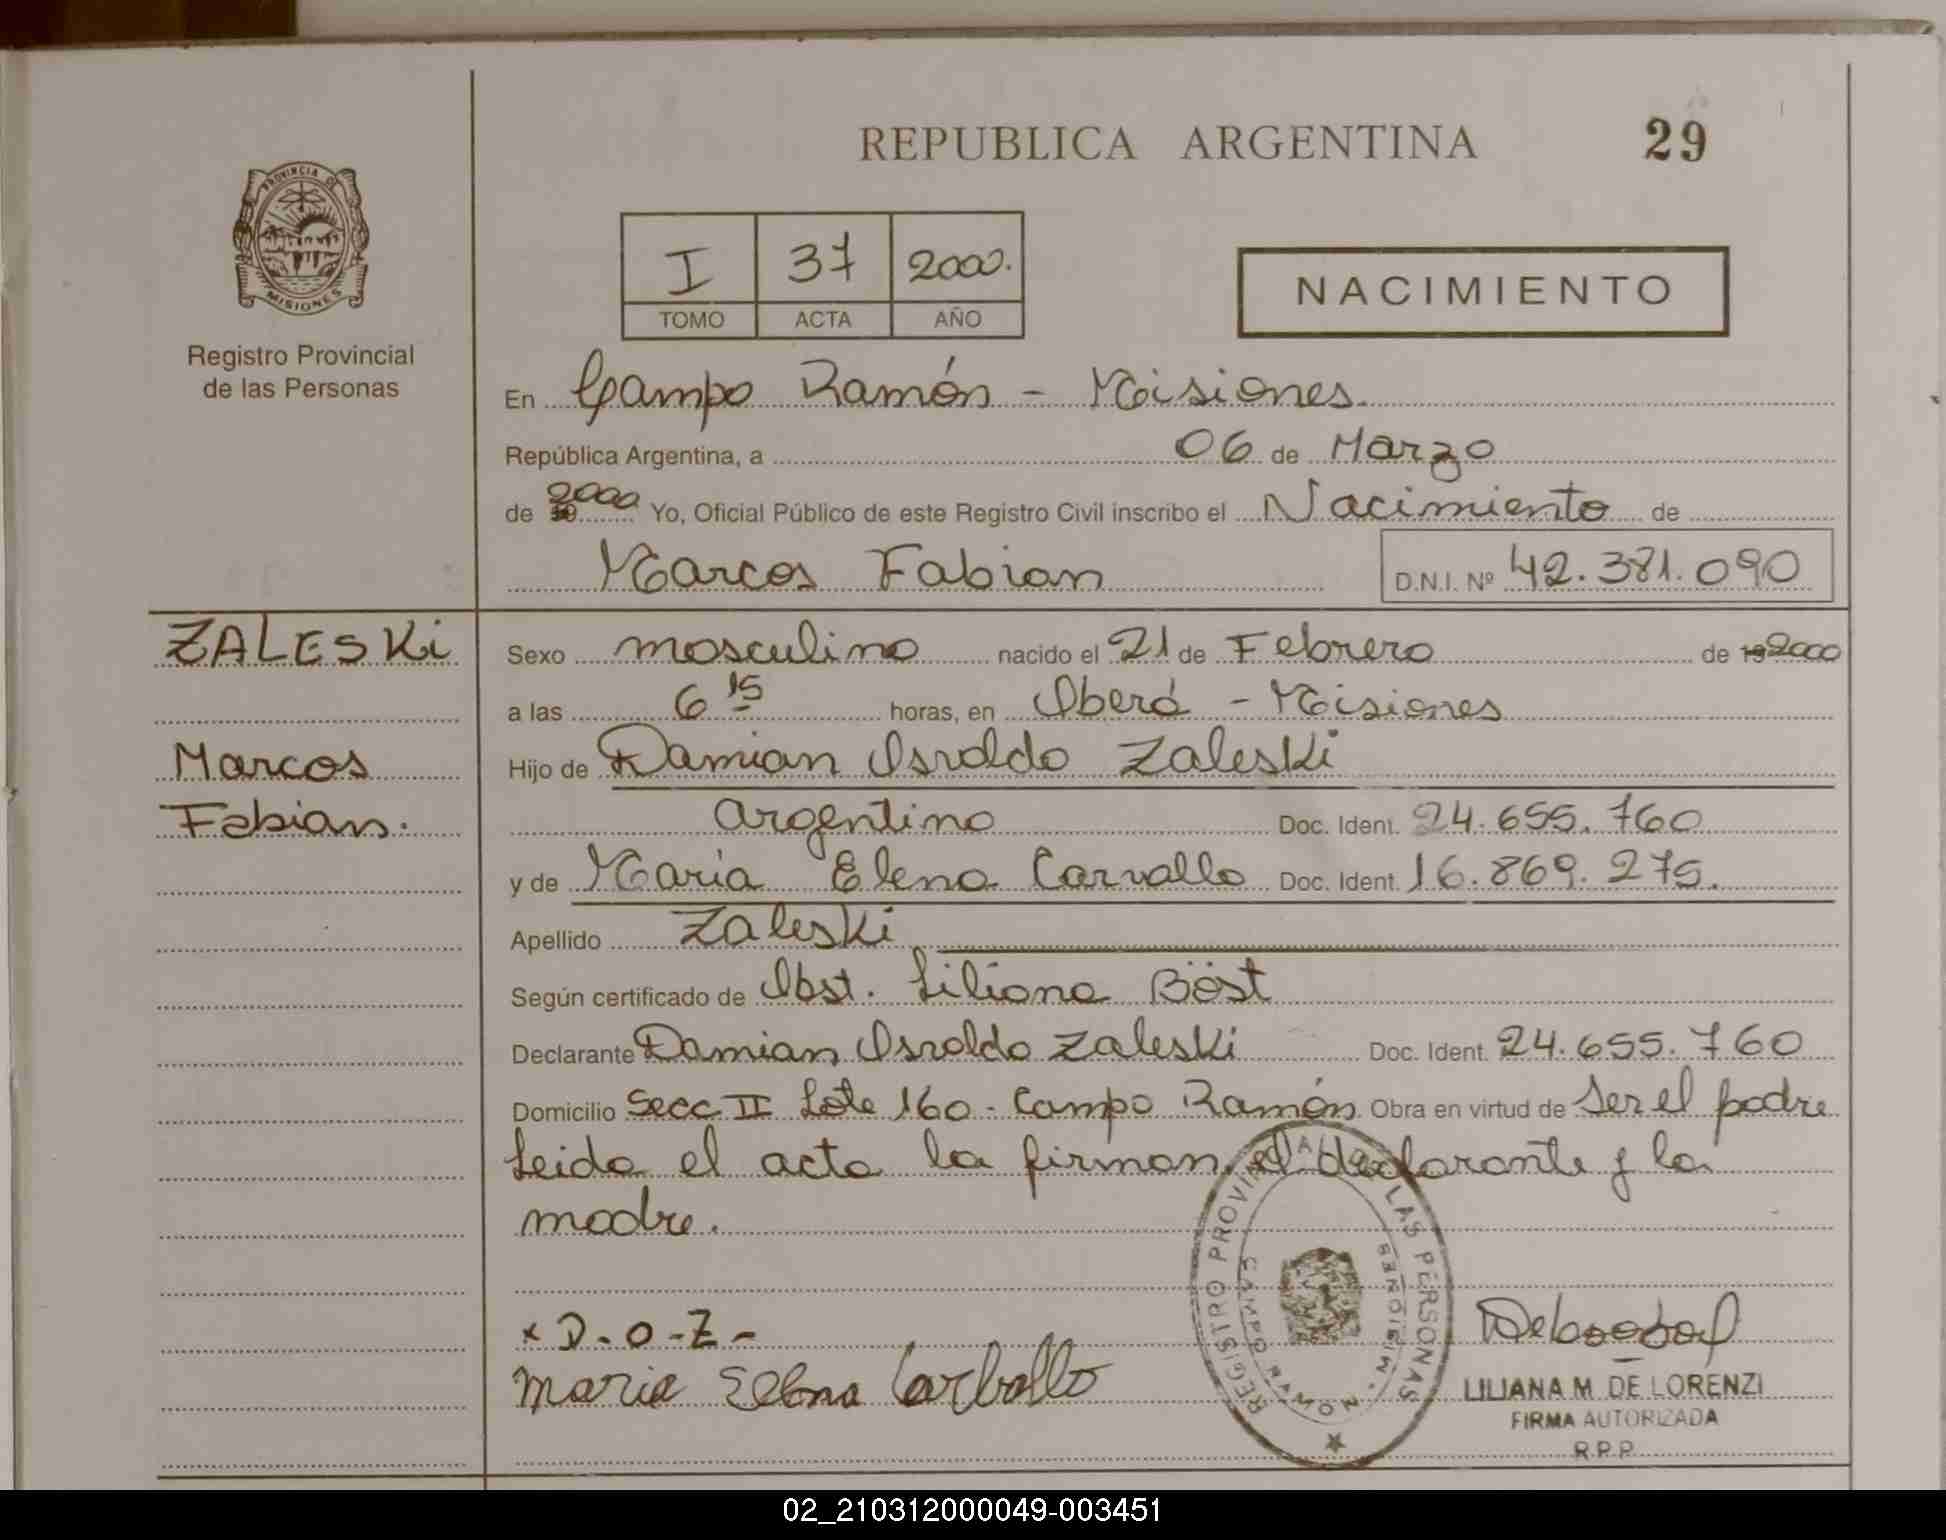 REPUBLICA ARGENTINA
29
PROVINCIA DE
MISIONES
Registro Provincial
de las Personas
I 37 2000.
TOMO ACTA AÑO
NACIMIENTO
En Campo Ramón - Misiones.
República Argentina, a 06 de Marzo
de 2000 Yo, Oficial Público de este Registro Civil inscribo el Nacimiento de
Marcos Fabian D.N.I. Nº 42.381.090
ZALESKi
Marcos
Fabian.
Sexo masculino nacido el 21 de Febrero de 19 2000
a las 6 15 horas, en Oberá - Misiones
Hijo de Damian Osvaldo Zaleski
argentino Doc. Ident. 24.655.760
y de Maria Elena Carvallo Doc. Ident. 16.869.275.
Apellido Zaleski
Según certificado de Obst. Liliana Böst
Declarante Damian Osvaldo Zaleski Doc. Ident. 24.655.760
Domicilio Secc II Lote 160 - Campo Ramón Obra en virtud de Ser el padre
Leida el acta la firman, el declarante y la
madre.
x D-O-Z-
Maria Elena Carballo
REGISTRO PROVINCIAL DE LAS PERSONAS
CAMPO RAMON - MISIONES
LILIANA M. DE LORENZI
FIRMA AUTORIZADA
R.P.P.
02_210312000049-003451